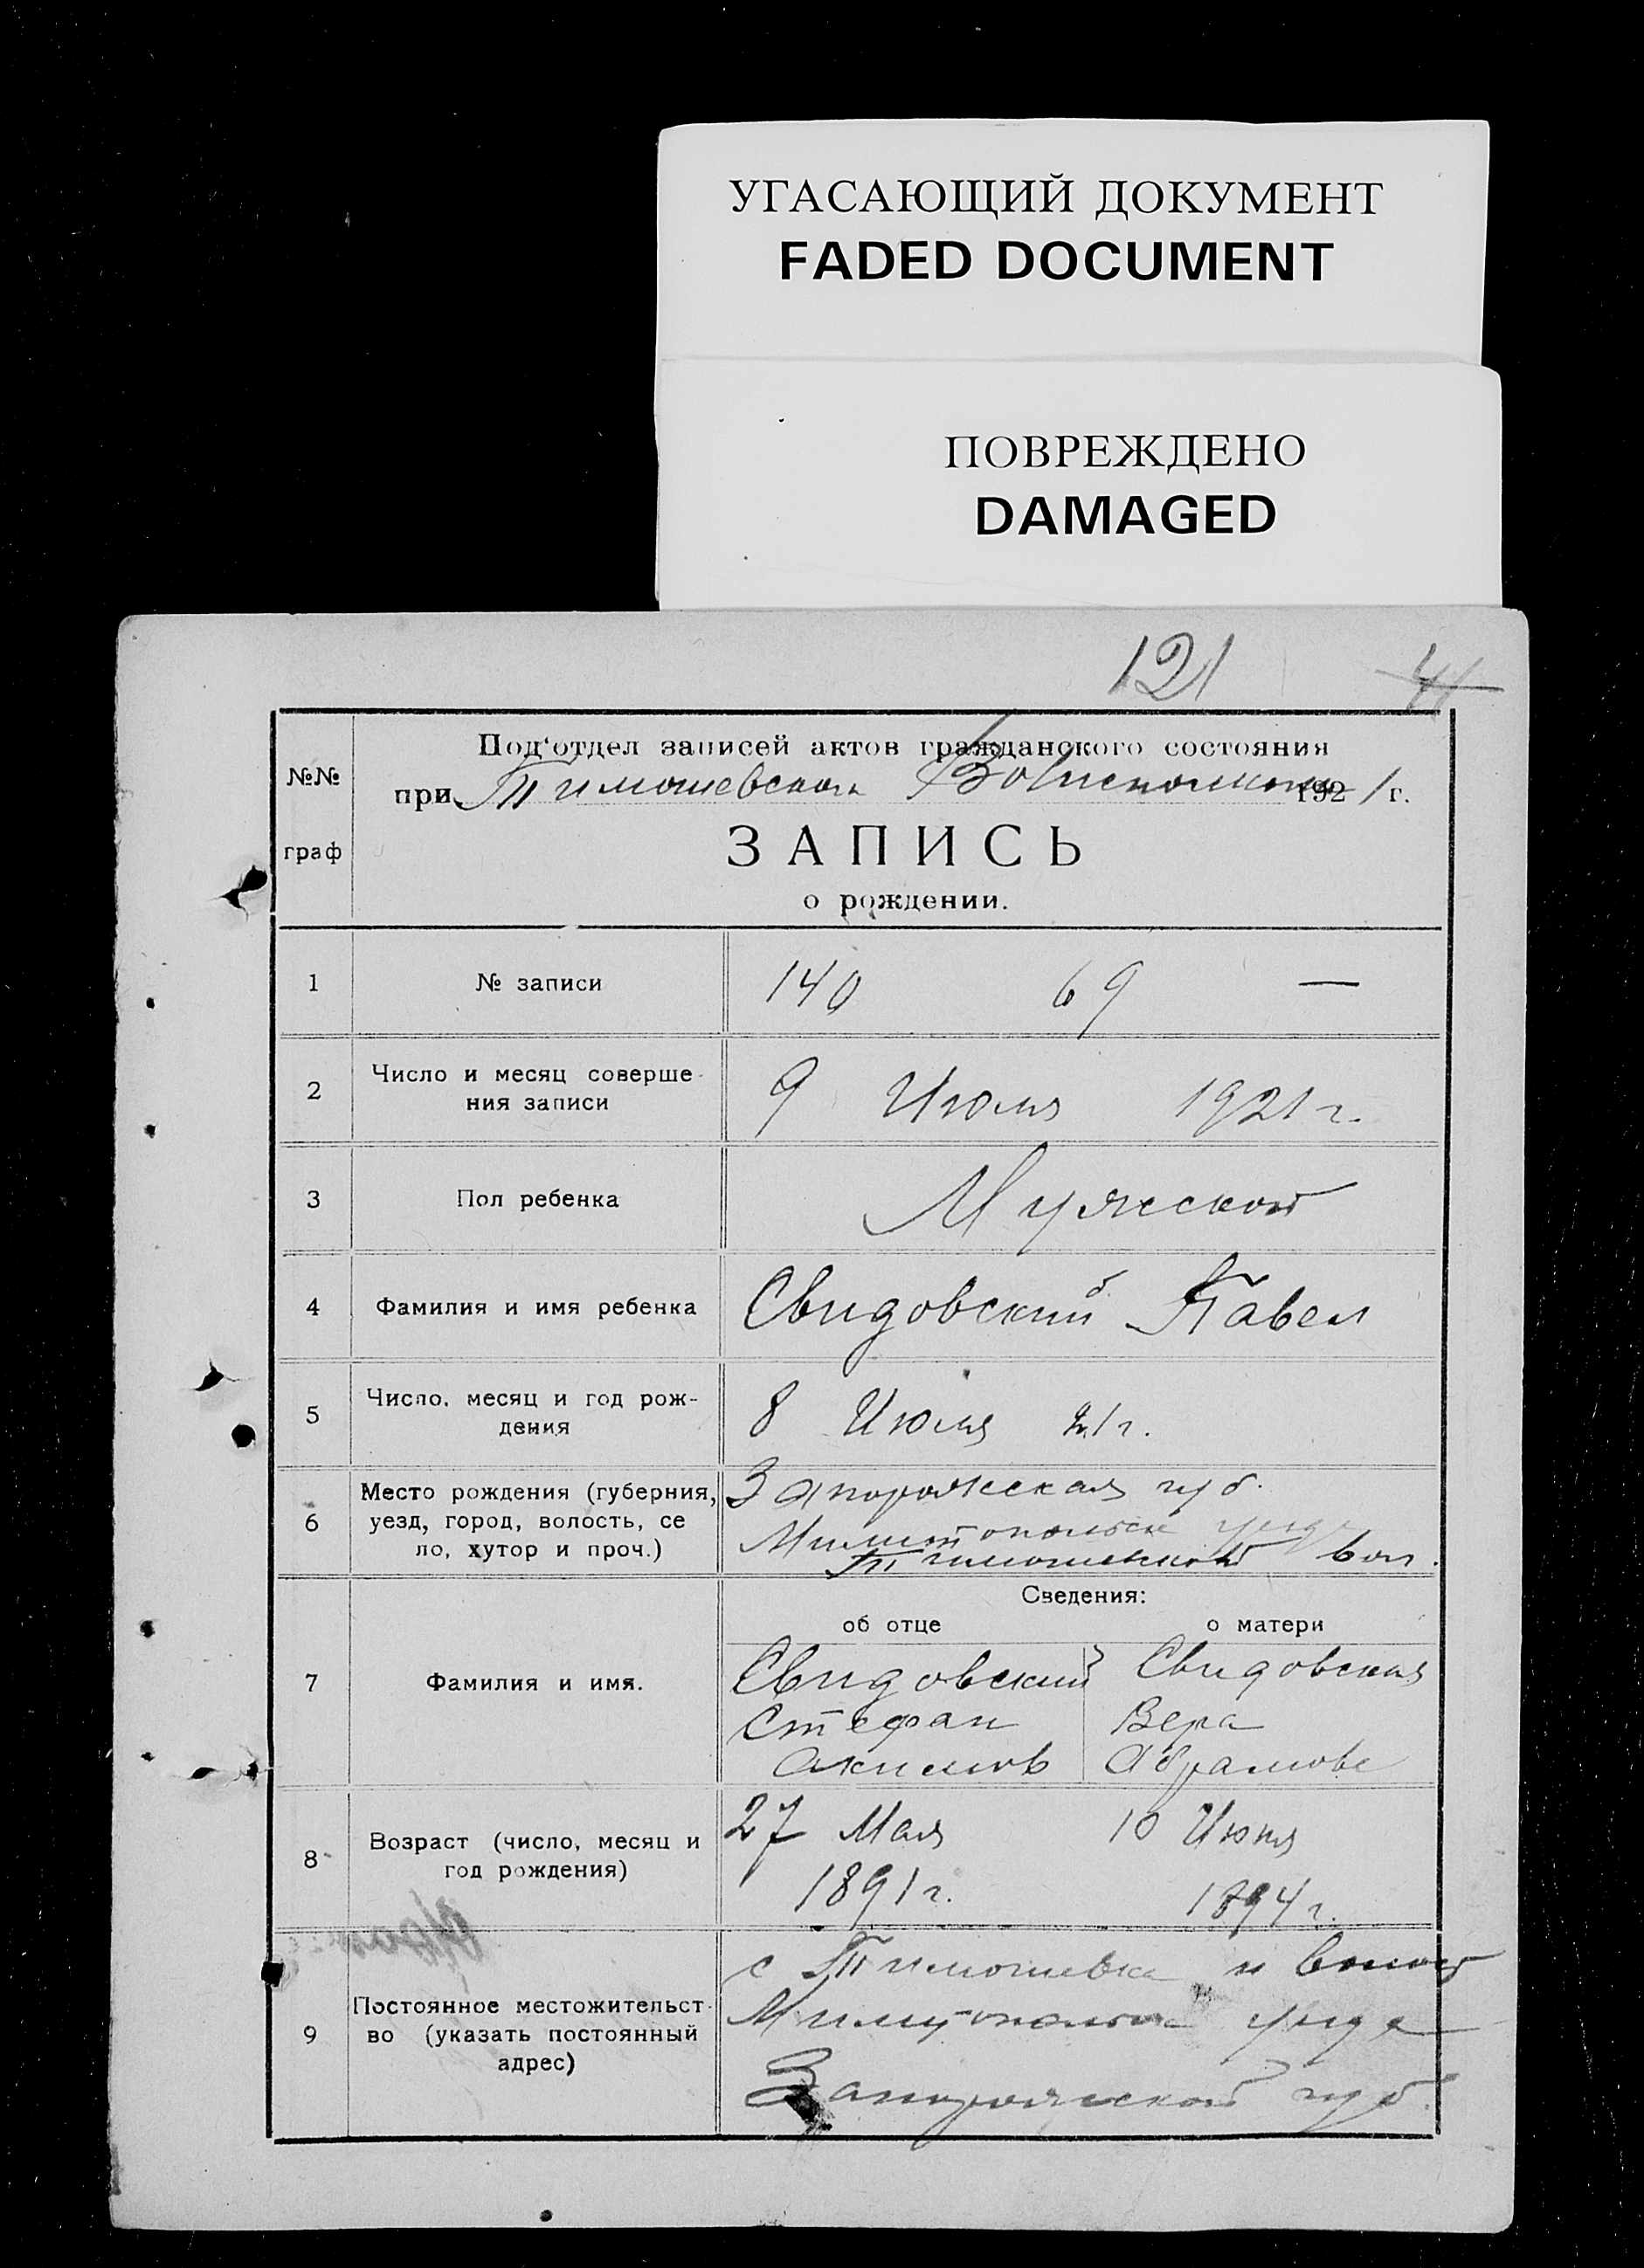 УГАСАЮЩИЙ ДОКУМЕНТ
FADED DOCUMENT
ПОВРЕЖДЕНО
DAMAGED
121 41
№№
граф
Под‘отдел записей актов гражданского состояния
при Тимошевском Волисполкоме 1921 г.
ЗАПИСЬ
о рождении.
1 № записи 140 69 —
2 Число и месяц соверше-
ния записи
9 Июля 1921 г.
3 Пол ребенка Мужской
4 Фамилия и имя ребенка Свидовский Павел
5 Число, месяц и год рож-
дения
8 Июля 21 г.
6 Место рождения (губерния,
уезд, город, волость, се
ло, хутор и проч.)
Запорожская губ.
уезда
вол.
Сведения:
об отце о матери
7 Фамилия и имя.
Свидовский Свидовская
Стефан Вера
Акимов Абрамова
8 Возраст (число, месяц и
год рождения)
27 Мая 10 Июня
1891 г. 1894 г.
9 Постоянное местожительст-
во (указать постоянный
адрес)
с Тимошевка и волост
уезда
Запорожской губ.